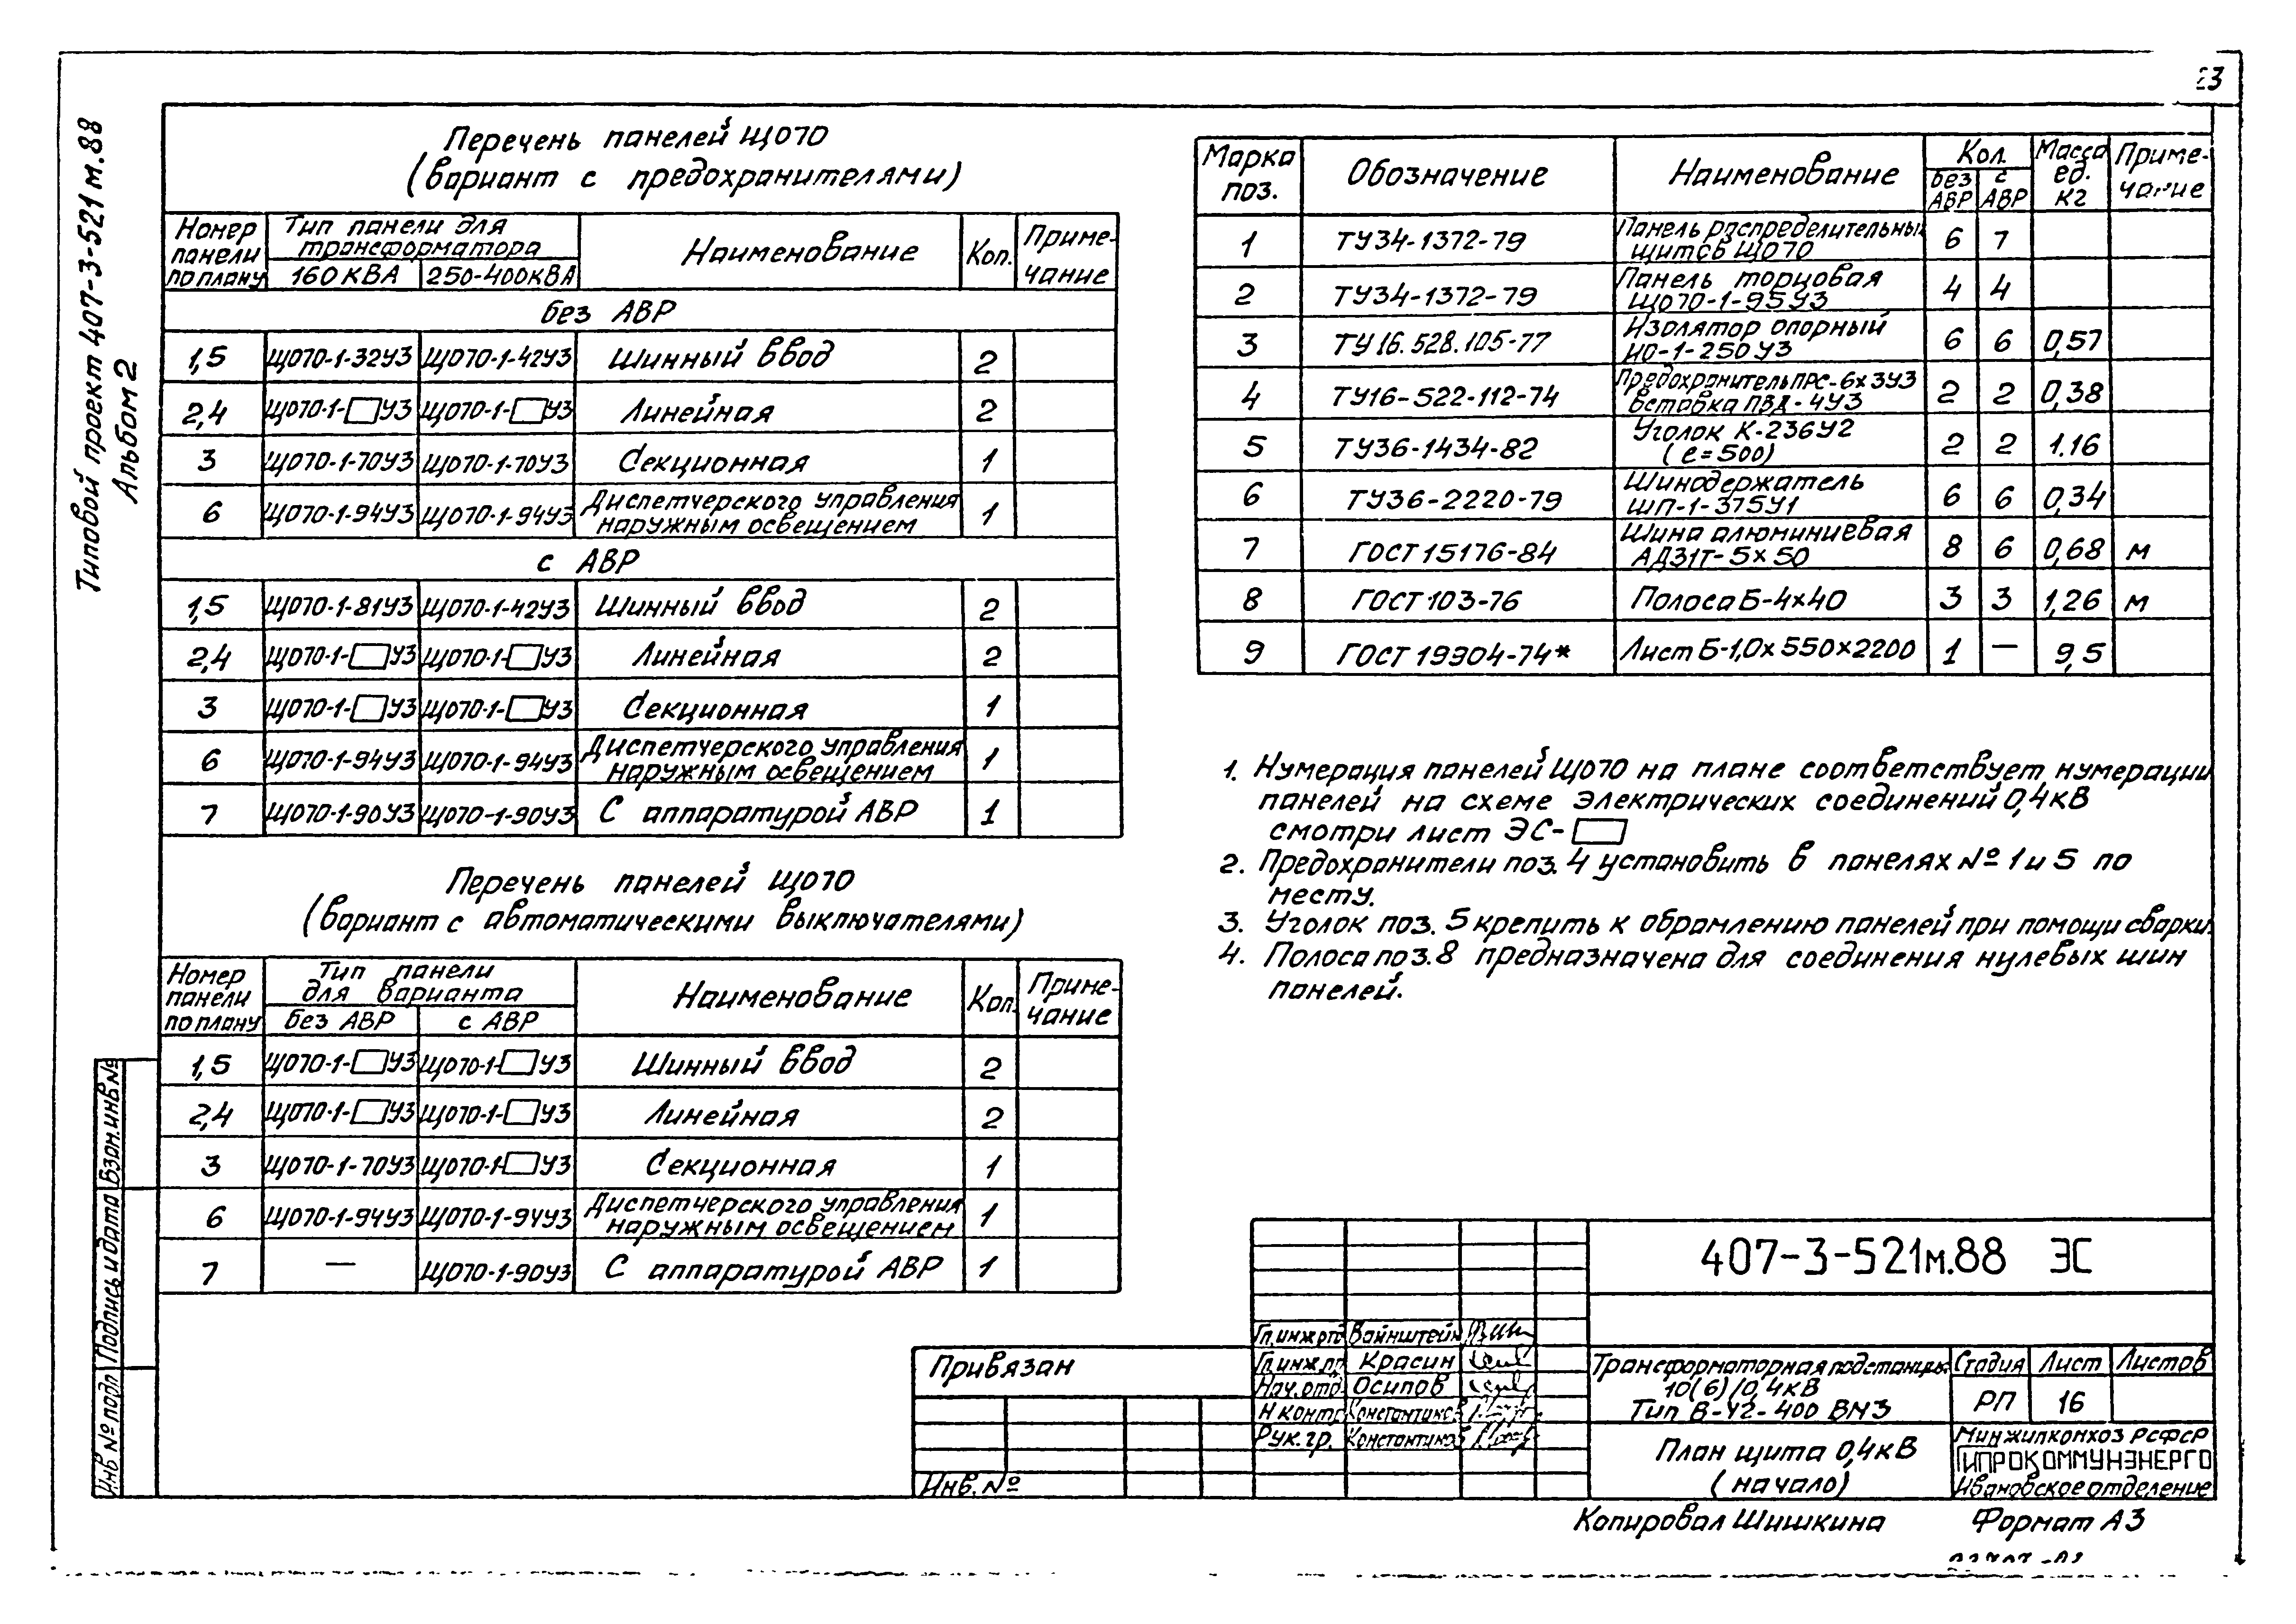 23
Типовой проект 407-3-521м.88
Альбом 2
Перечень панелей ЩО70
(вариант с предохранителями)
Номер панели по плану | Тип панели для трансформатора | Наименование | Кол. | Примечание
160 кВА | 250-400кВА
без АВР
1,5 | ЩО70-1-32У3 | ЩО70-1-42У3 | Шинный ввод | 2
2,4 | ЩО70-1-□У3 | ЩО70-1-□У3 | Линейная | 2
3 | ЩО70-1-70У3 | ЩО70-1-70У3 | Секционная | 1
6 | ЩО70-1-94У3 | ЩО70-1-94У3 | Диспетчерского управления наружным освещением | 1
с АВР
1,5 | ЩО70-1-81У3 | ЩО70-1-42У3 | Шинный ввод | 2
2,4 | ЩО70-1-□У3 | ЩО70-1-□У3 | Линейная | 2
3 | ЩО70-1-□У3 | ЩО70-1-□У3 | Секционная | 1
6 | ЩО70-1-94У3 | ЩО70-1-94У3 | Диспетчерского управления наружным освещением | 1
7 | ЩО70-1-90У3 | ЩО70-1-90У3 | С аппаратурой АВР | 1
Перечень панелей ЩО70
(вариант с автоматическими выключателями)
Номер панели по плану | Тип панели для варианта | Наименование | Кол. | Примечание
без АВР | с АВР
1,5 | ЩО70-1-□У3 | ЩО70-1-□У3 | Шинный ввод | 2
2,4 | ЩО70-1-□У3 | ЩО70-1-□У3 | Линейная | 2
3 | ЩО70-1-70У3 | ЩО70-1-□У3 | Секционная | 1
6 | ЩО70-1-94У3 | ЩО70-1-94У3 | Диспетчерского управления наружным освещением | 1
7 | — | ЩО70-1-90У3 | С аппаратурой АВР | 1
Марка поз. | Обозначение | Наименование | Кол. | Масса ед. кг | Примечание
без АВР | с АВР
1 | ТУ34-1372-79 | Панель распределительных щитов ЩО70 | 6 | 7
2 | ТУ34-1372-79 | Панель торцовая ЩО70-1-95У3 | 4 | 4
3 | ТУ16.528.105-77 | Изолятор опорный ИО-1-250У3 | 6 | 6 | 0,57
4 | ТУ16-522-112-74 | Предохранитель ПРС-6х3У3 вставка ПВД-4У3 | 2 | 2 | 0,38
5 | ТУ36-1434-82 | Уголок К-236У2 (ℓ=500) | 2 | 2 | 1.16
6 | ТУ36-2220-79 | Шинодержатель ШП-1-375У1 | 6 | 6 | 0,34
7 | ГОСТ 15176-84 | Шина алюминиевая АД31Т-5х50 | 8 | 6 | 0,68 | м
8 | ГОСТ 103-76 | Полоса Б-4х40 | 3 | 3 | 1,26 | м
9 | ГОСТ 19904-74* | Лист Б-1,0х550х2200 | 1 | — | 9,5
1. Нумерация панелей ЩО70 на плане соответствует нумерации
панелей на схеме электрических соединений 0,4кВ
смотри лист ЭС-□
2. Предохранители поз. 4 установить в панелях № 1 и 5 по
месту.
3. Уголок поз. 5 крепить к обрамлению панелей при помощи сварки.
4. Полоса поз. 8 предназначена для соединения нулевых шин
панелей.
Взам. инв. №
Подпись и дата
Инв. № подл
Привязан
Инв. №
407-3-521м.88 ЭС
Гл. инж. отд | Вайнштейн
Гл. инж. пр | Красин
Нач. отд. | Осипов
Н контр | Константинов
Рук. гр. | Константинов
Трансформаторная подстанция
10(6)/0,4кВ
Тип В-42-400 ВМ3
Стадия | Лист | Листов
РП | 16
План щита 0,4кВ
(начало)
Минжилкомхоз РСФСР
ГИПРОКОММУНЭНЕРГО
Ивановское отделение
Копировал Шишкина
Формат А3